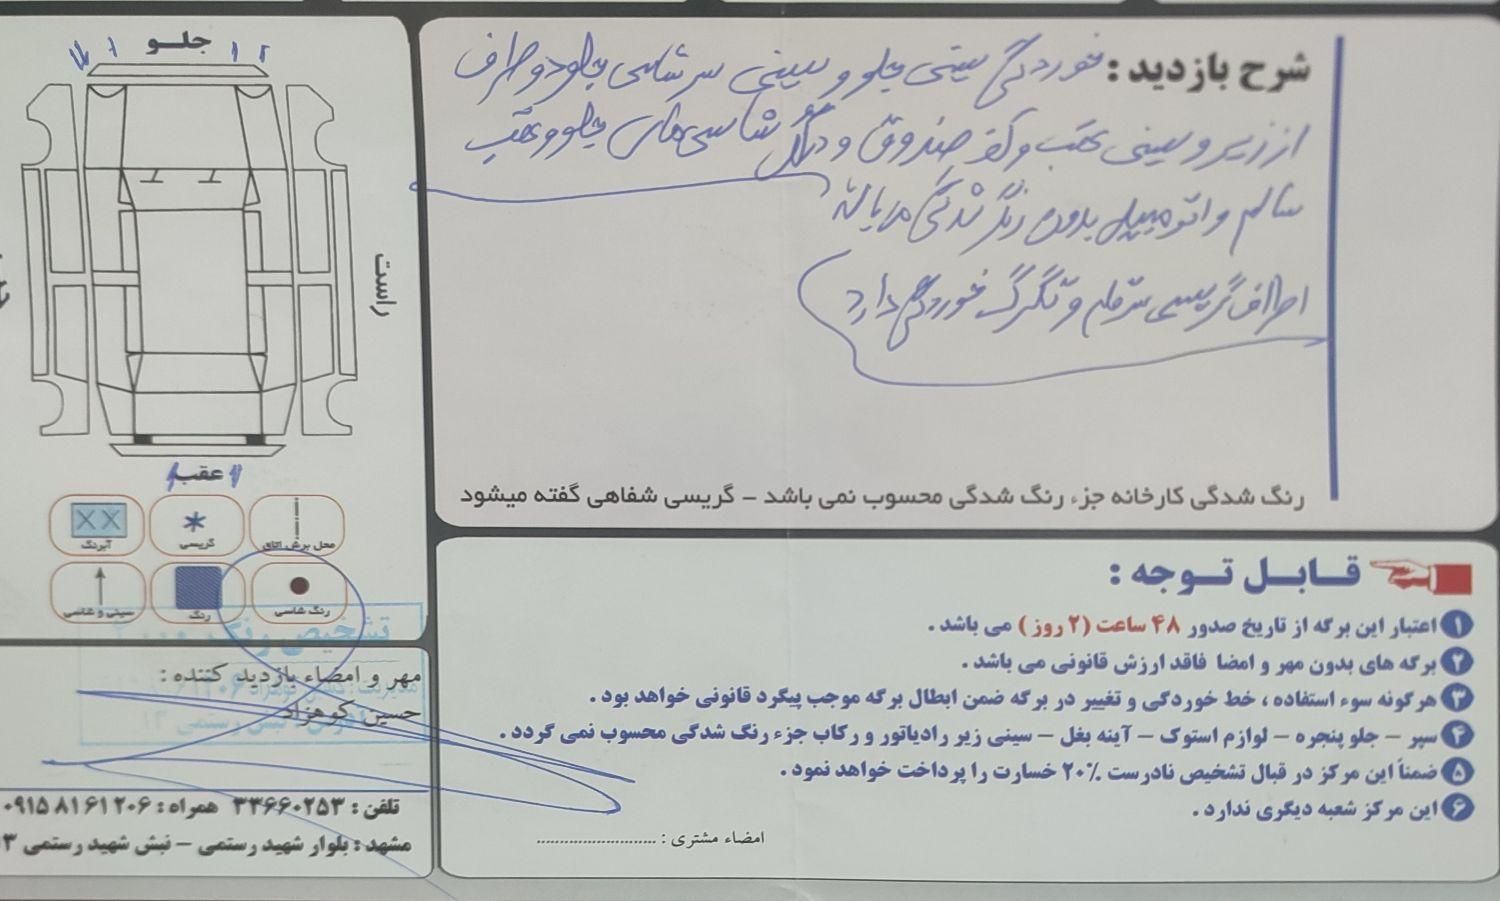 شرح بازدید : خوردگی سینی جلو و سینی سرشاسی جلو دو طرف
از زیر و سینی عقب و کف صندوق و دیگر شاسی‌های جلو و عقب
سالم و اتومبیل بدون رنگ شدگی می‌باشد
اطراف گریسی سقف و تگرگ خوردگی دارد
رنگ شدگی کارخانه جزء رنگ شدگی محسوب نمی باشد - گریسی شفاهی گفته میشود
جلو
راست
عقب
محل برش اتاق
گریسی
آبرنگ
رنگ شاسی
رنگ
سینی و شاسی
قابل توجه :
۱ اعتبار این برگه از تاریخ صدور ۴۸ ساعت (۲ روز) می باشد .
۲ برگه های بدون مهر و امضا فاقد ارزش قانونی می باشد .
۳ هرگونه سوء استفاده ، خط خوردگی و تغییر در برگه ضمن ابطال برگه موجب پیگرد قانونی خواهد بود .
۴ سپر - جلو پنجره - لوازم استوک - آینه بغل - سینی زیر رادیاتور و رکاب جزء رنگ شدگی محسوب نمی گردد .
۵ ضمناً این مرکز در قبال تشخیص نادرست ۲۰٪ خسارت را پرداخت خواهد نمود .
۶ این مرکز شعبه دیگری ندارد .
امضاء مشتری : ..........................
تشخیص رنگ
مهر و امضاء بازدید کننده :
حسین کوهزاد
نبش رستمی ۱۳
تلفن : ۳۳۶۶۰۲۵۳ همراه : ۰۹۱۵۸۱۶۱۲۰۶
مشهد : بلوار شهید رستمی - نبش شهید رستمی